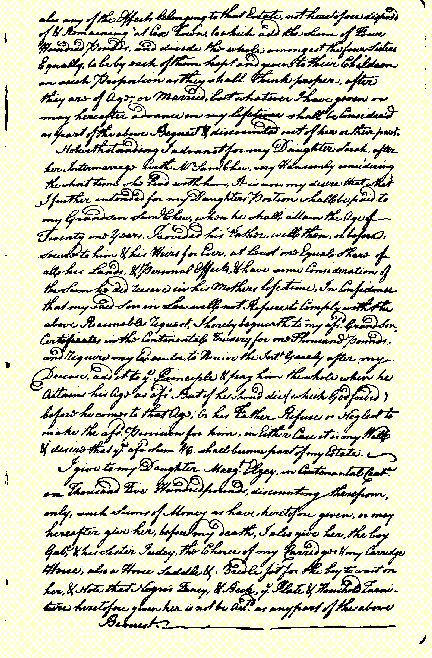 also any of the Effects belonging to that Estate, not heretofore disposd
of & Remaining at Cox Town, to which add the Sum of Five
Hundred Pounds, and divide the whole amongst the four Sisters
Equally, to be by each of them kept and given to their Children
in such Proportion as they shall think proper, after
they are of Age, or Married, but whatever I have given or
may hereafter advance in my lifetime shall be Considered
as part of the above Bequest & discounted out of her or their part.
Notwithstanding I advanct for my Daughter Sarah, after
her Intermarriage with Mr Sam Chew, very Hansomly considering
the short time She livd with him, It is now my desire that what
I further intended for my Daughters Portion shall be paid to
my Grandson Sam Chew, when he shall attain the Age of
Twenty one Years. Provided his Father will then, or before
secure to him & his Heirs for Ever, at least one Equal share of
all his Lands, & Personal Effects, & have some Consideration of
the Sum he did receive in his Mothers lifetime, In Confidence
that my said Son in Law will not Refuse to Comply with the
above Reasonable Request, I hereby bequeath to my afd Grandson
Certificates in the Continental Treasury for one Thousand Pounds,
and require my Executor to Receive the Intt Yearly after my
Decease, and at ye Principle & pay him the whole when he
Attains his Age as afd But if he should die (which God forbid)
before he comes to that Age, or his Father Refuse or Neglect to
make the afd Provision for him, in Either Case it is my Will
& desire that ye afd Sum &c. shall become part of my Estate.
I give to my Daughter Margt Elzey, in Continental Certs
one Thousand Five Hundred pound, discounting therefrom,
only, such Sums of Money as have heretofore given, or may
hereafter give her, before my death, I also give her, the boy
Gab, & his Sister the Choice of my Carriages & my Carriage
Horse, also a Horse Saddle & Bridle for the boy to wait on
her, & Note, that Negro Fancy, & ye Plate & Household Furni-
ture heretofore given her is not be as any part of the above
Bequest.